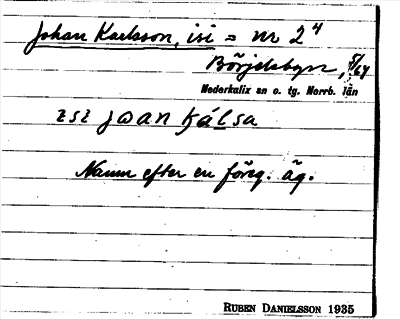 Johan Karlsson, isi = nr 2⁴
Börjelsbyn, 5/64
Nederkalix sn o. tg. Norrb. län
ɪsɪ jωan kálsa
Namn efter en föreg. äg.
RUBEN DANIELSSON 1935